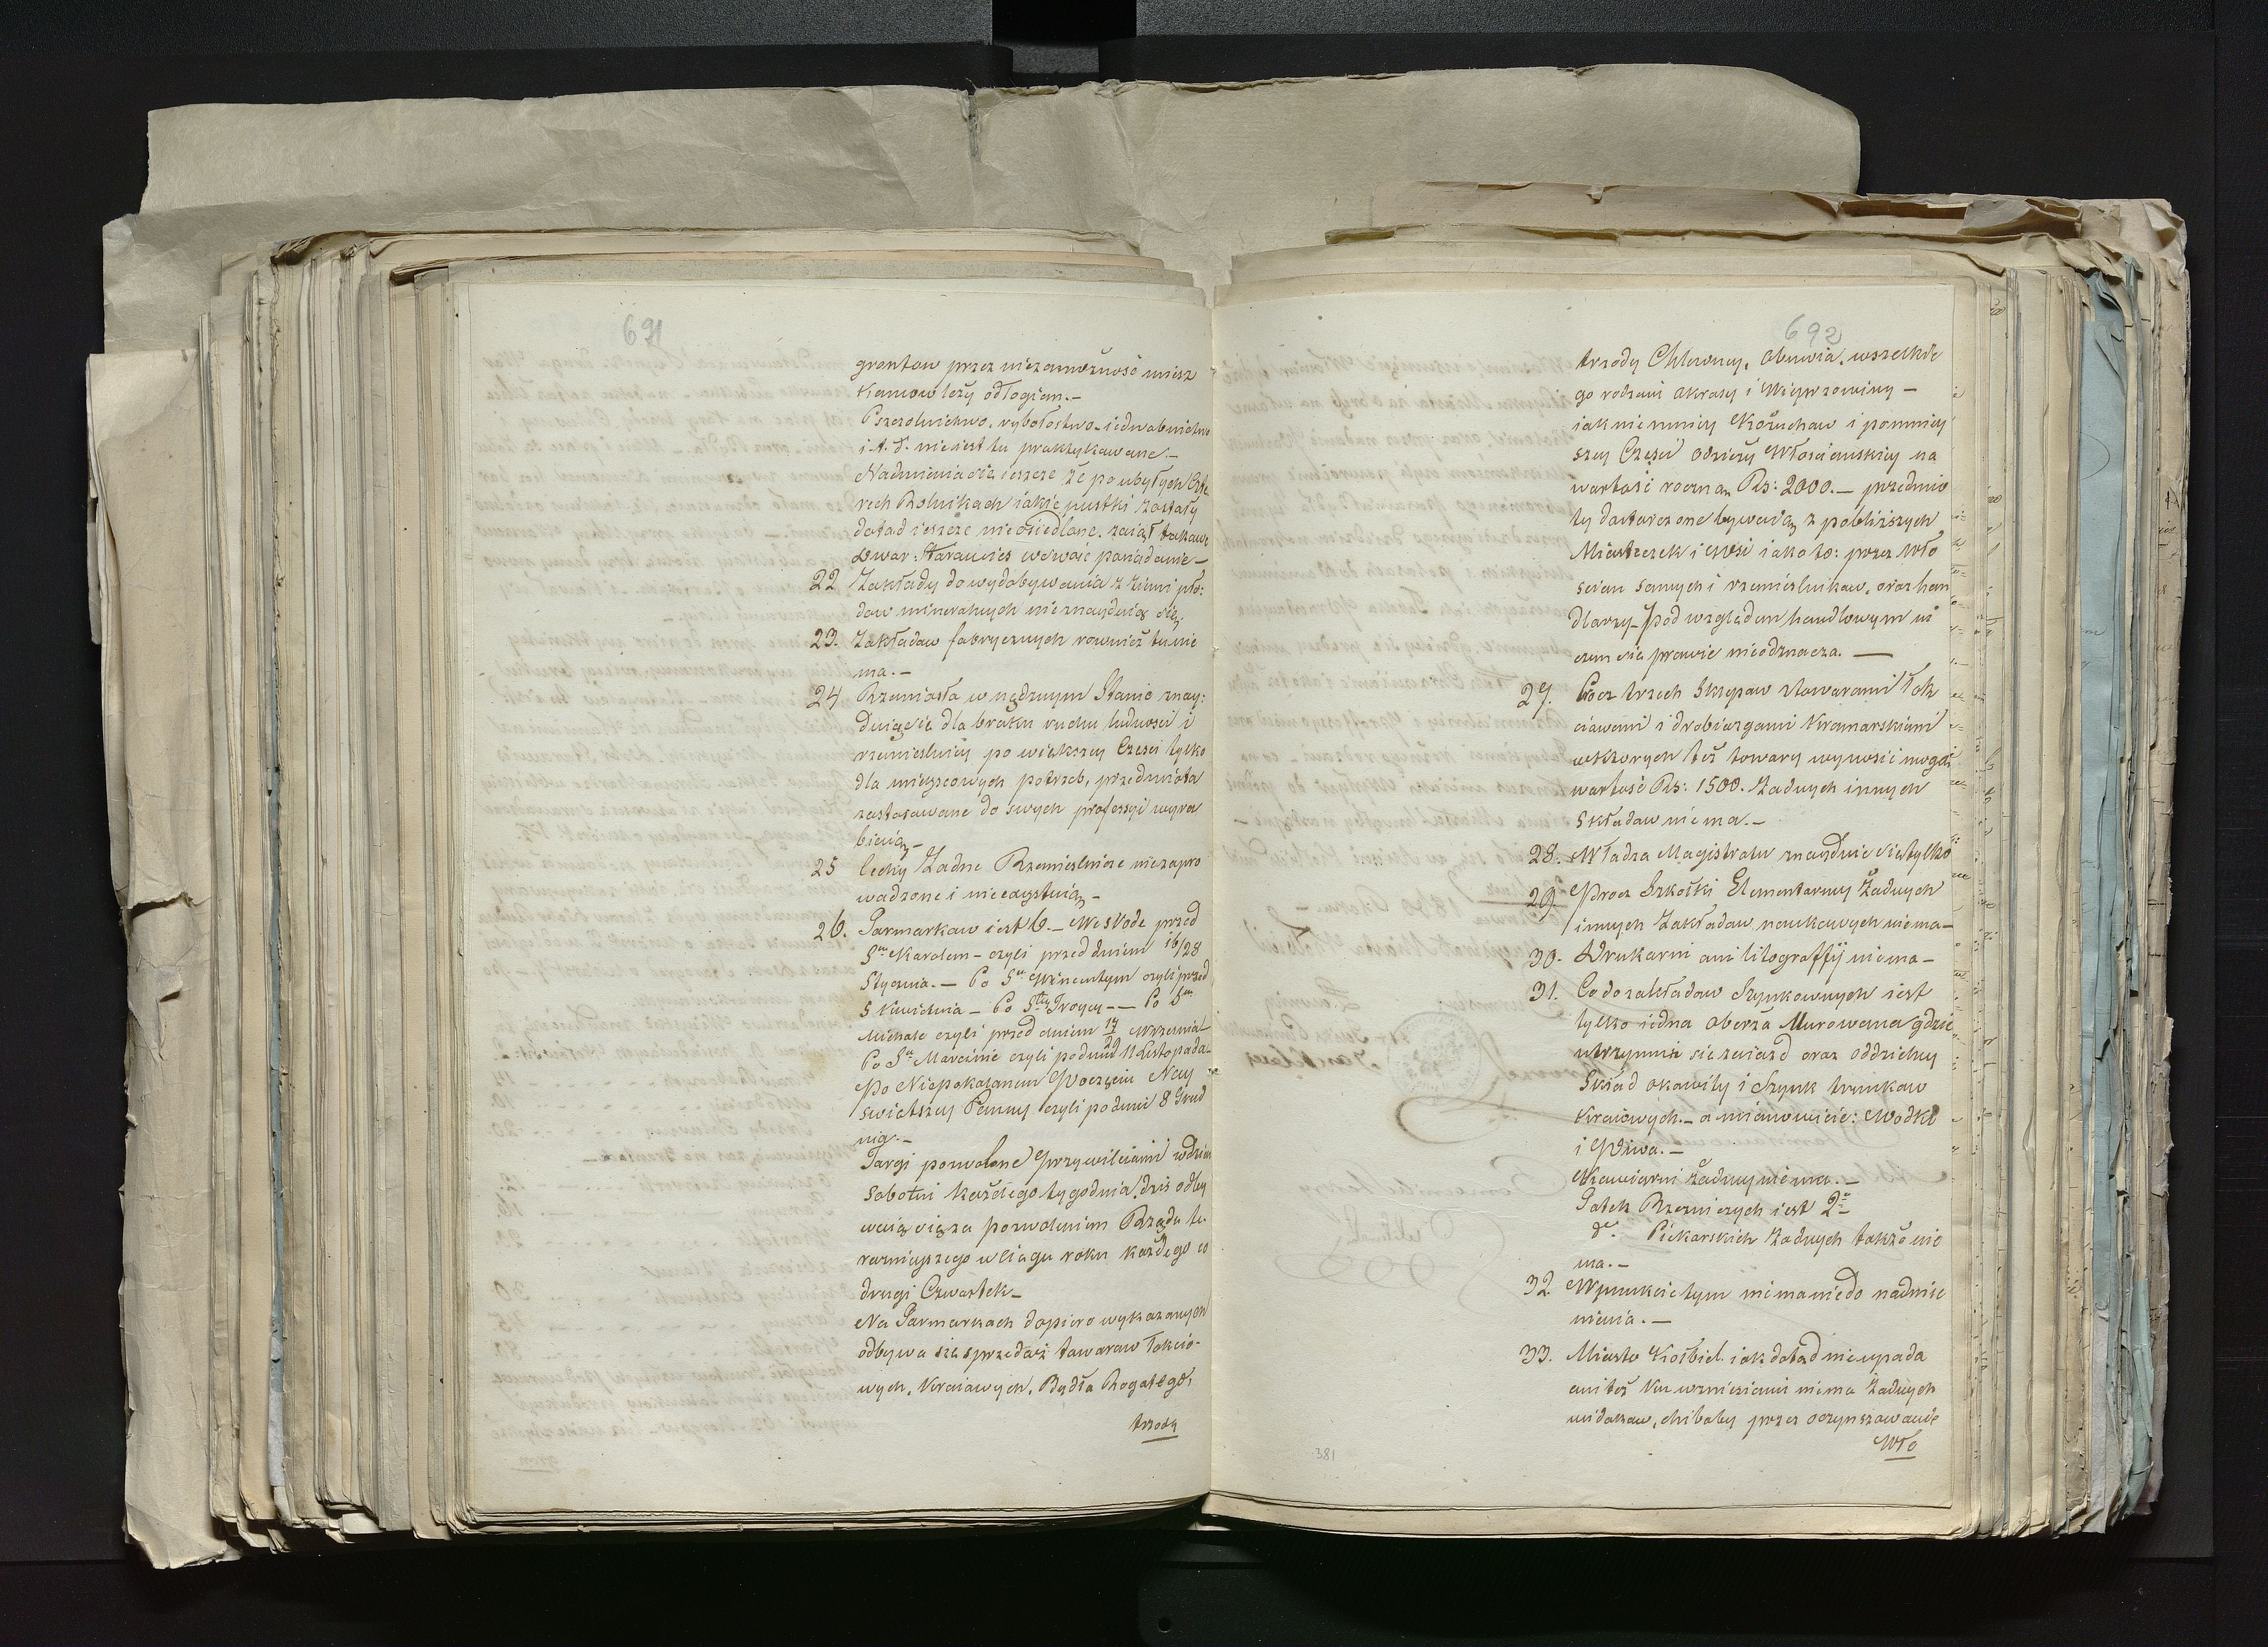 691
gruntow przez niezamożność miesz
kancow leży odłogiem.-
Pszczolnictwo, rybołostwo, iedwabnictwo
i.t.d. nieiest tu praktykowane.-
Nadmienia się ieszcze że po ubyłych Czte
rech Rolnikach iakie pustki zostały
dotad ieszcze nieosiedlone, zaiął takowe
Dwor Starawies w swoie posiadanie-
22 Zakłady do wydobywania z ziemi pło:
dow mineralnych nieznayduią się.
23. Zakładow fabrycznych rownież tu nie
ma.-
24 Rzemiosła w nędznym Stanie znay:
duią się dla braku ruchu ludnosci i
rzemieslnicy po większey Czesci tylko
dla mieyscowych potrzeb, przedmiota
zastosowane do swych professyi wyra
biaią-
25 Cechy Żadne Rzemieslnicze niezapro
wadzone i nieexystuią-
26. Jarmarkow iest 6.- We Srode przed
Sm Karolem- czyli przed dniem 16/28
Stycznia.- Po Sm Wincentym czyli przed
5 Kwietnia- Po Stey Troycy-- Po Sm
Michale czyli przed dniem 17/29 Wrzesnia-
Po Sm Marcinie czyli po dniu 11 Listopada-
Po Niepokalanem Poczęciu Nay
swiętszey Panny czyli po dniu 8 Grud
nia.-
Targi pozwolone Przywileiami w dzien
Sobotni każdego tygodnia, dzis odby
waią się za pozwoleniem Rządu te
raznieyszego w Ciągu roku każdego co
drugi Czwartek-
Na Jarmarkach dopiero wykazanych
odbywa się sprzedaż towarow Łokcio-
wych, Kraiowych, Bydła Rogatego,
trzody
692
trzody Chlewney, Obuwia, wszelkie
go rodzaiu okrasy i Wieprzowiny-
iak niemniey Kożuchow i pomniey
szey Częsci odzieży Włoscianskiey na
wartość roczną Rs: 2000.- przedmio
ty dostarczone bywaią z pobliższych
Miasteczek i Wsi iako to: przez Wło
scian samych i rzemieslnikow, oraz han
dlarzy- Pod względem handlowym ni
czem się prawie nieodznacza.-
27. Procz trzech Sklepow z towarami Łok
ciowemi i drobiazgami Kramarskiemi
w ktorych też towary wynosić mogą
wartość Rs: 1500. Żadnych innych
Składow niema.-
28. Władza Magistratu znayduie się tylko
29 Procz Szkołki Elementarney Żadnych
innych Zakładow naukowych niema-
30. Drukarni ani litograffij niema-
31. Co do zakładow Szynkownych iest
tylko iedna Oberża Murowana gdzie
utrzymuie się zaiazd oraz oddzielny
Skład okowity i Szynk trunkow
Kraiowych.- a mianowicie: Wodki
i Piwa.-
Kawiarni żadney niema.-
Jatek Rzeźniczych iest 2e
do. Piekarskich Żadnych także nie
ma.-
32. W punkcie tym niema nic do nadmie
nienia.-
33. Miasto Kołbiel iak dotad nieupada
ani też Ku wzniesieniu niema Żadnych
widokow, chibaby przez oczynszowanie
Wło
381